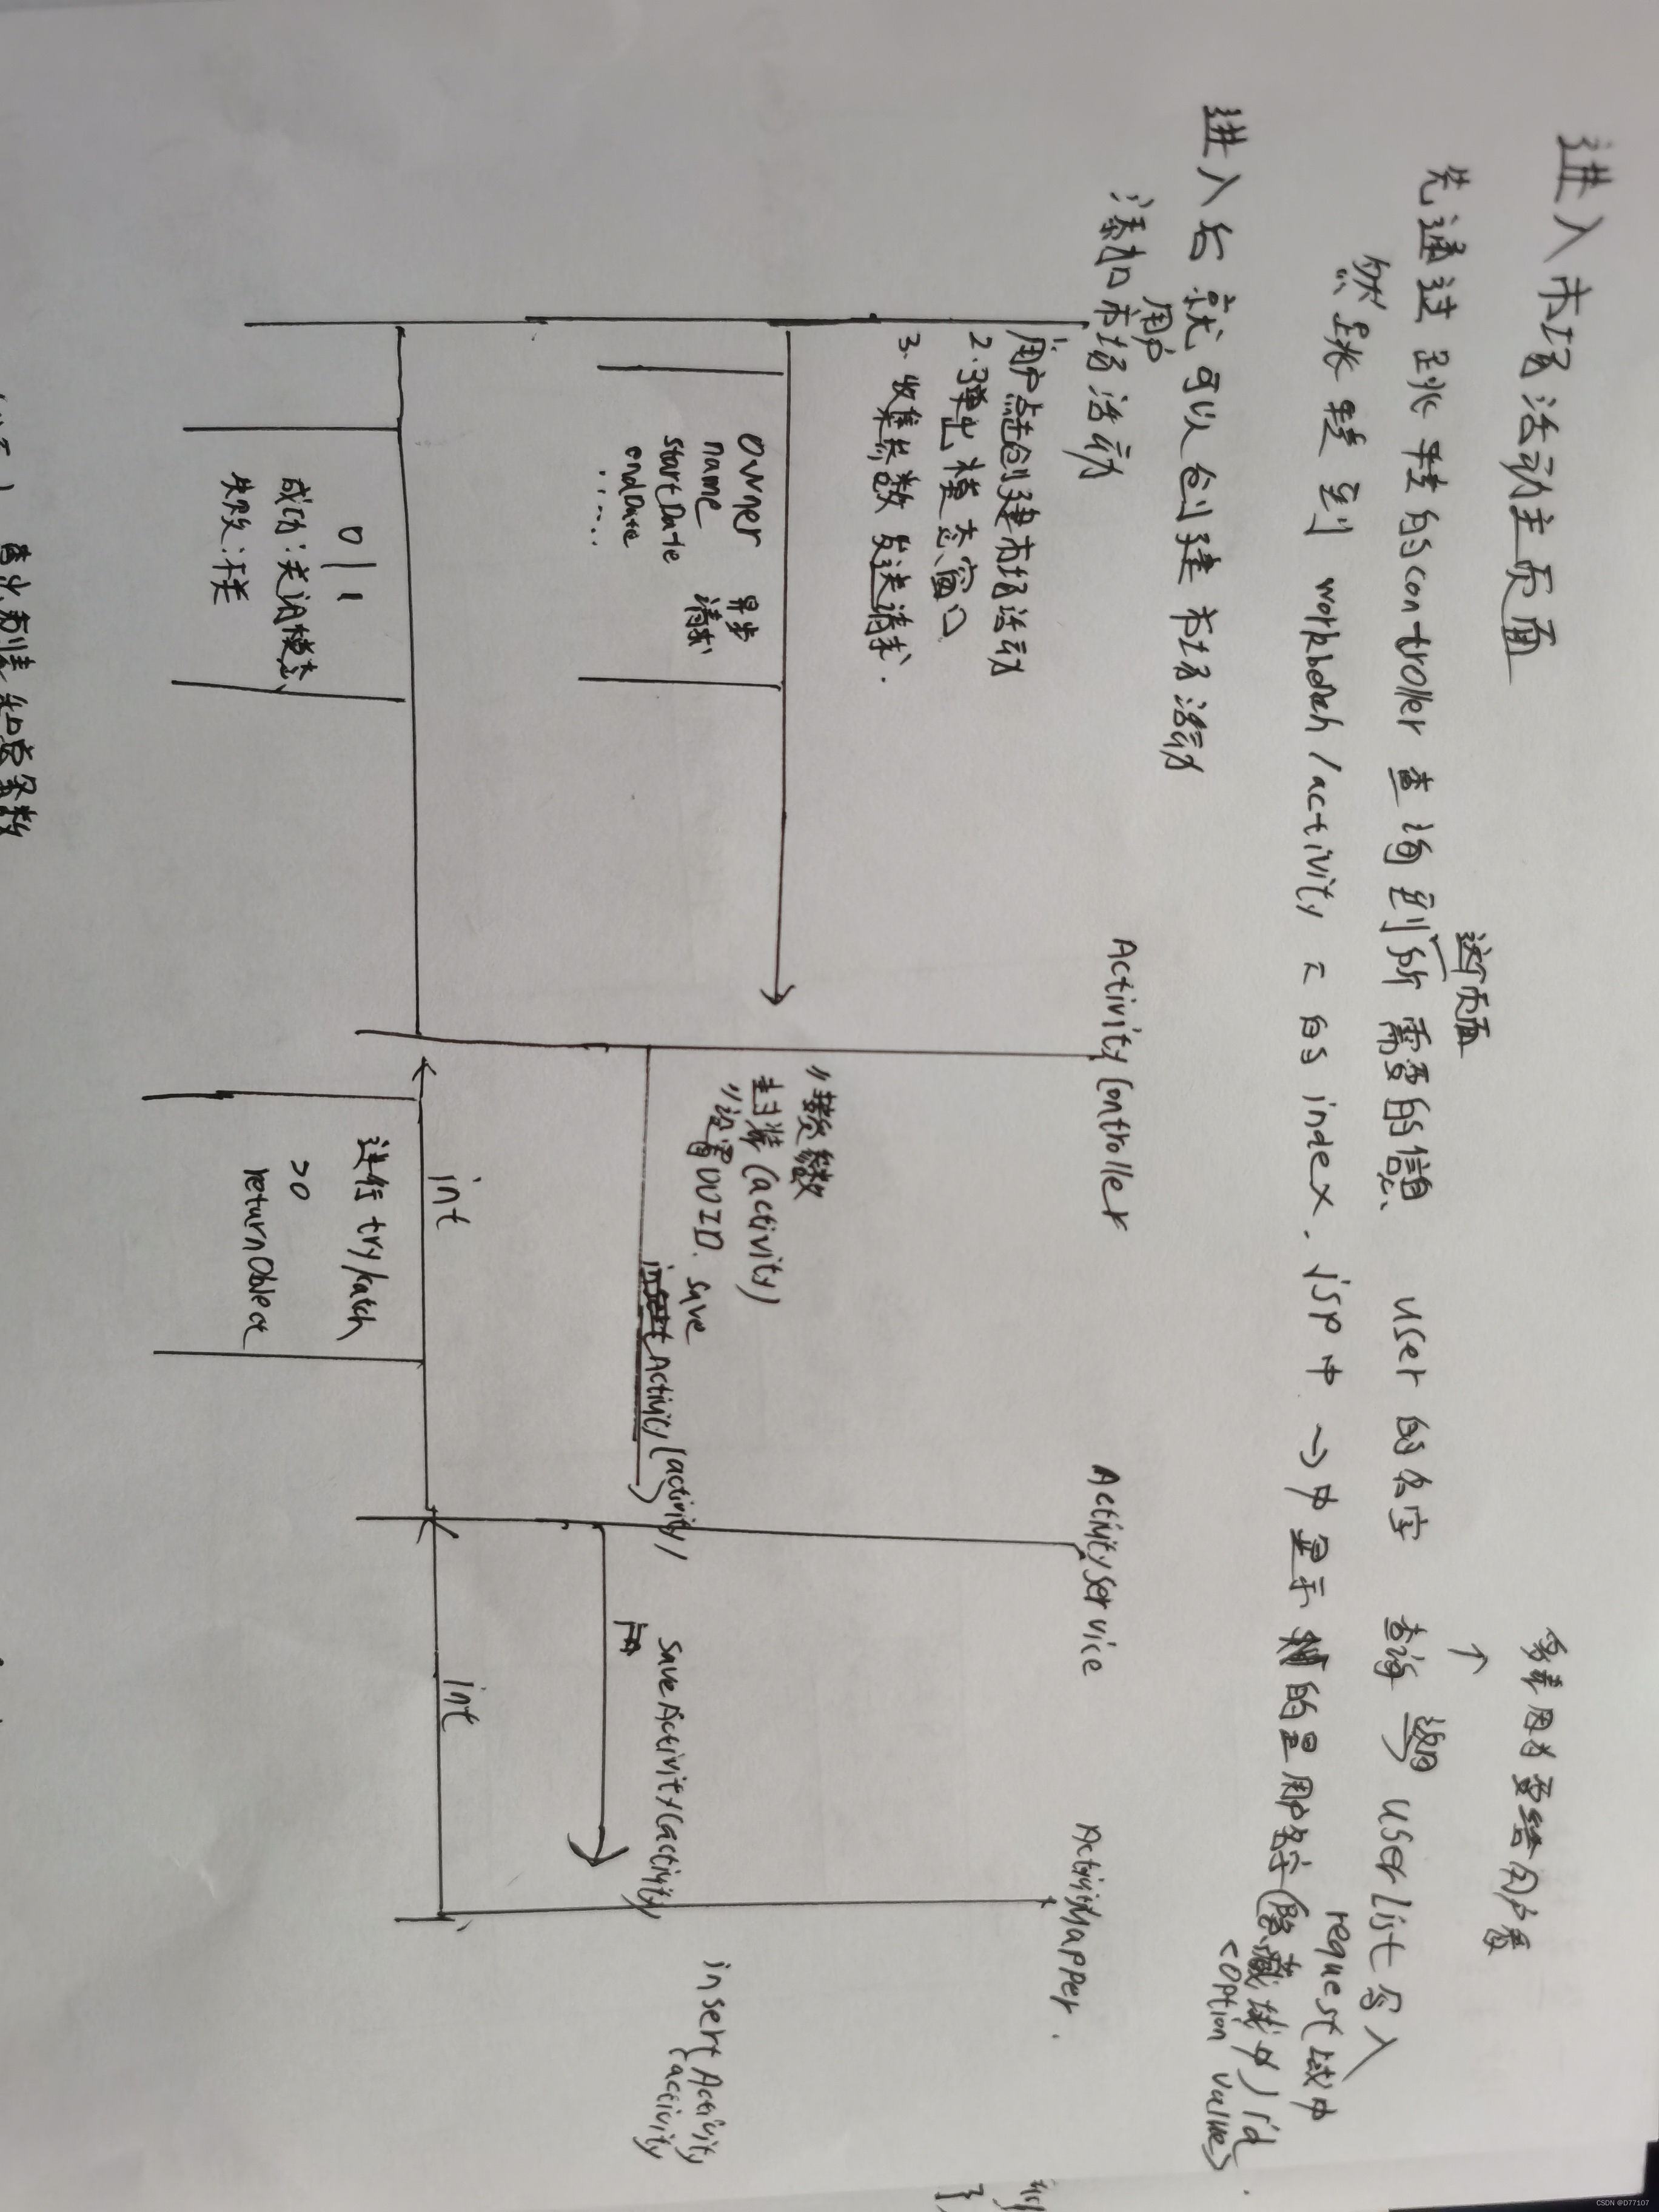 进入市场活动主页面
多表因为要给用户看
先通过跳转的controller查询到所需要的信息、 user的名字 查询 返回 userList 写入
这个页面
↑
request域中
然后跳转到 workbench/activity 下的 index.jsp中 →中显示的是用户名字(隐藏域中) id
<option value>
进入后就可以创建市场活动
用户
添加市场活动
ActivityController
ActivityService
ActivityMapper.
用户点击创建市场活动
2.弹出模态窗口
3.收集参数 发送请求.
owner
name
startDate
endDate
.....
异步
请求
//接受参数
封装(activity)
//设置UUID.
save
Activity(activity)
saveActivity(activity)
insertActivity
(activity
int
int
进行try/catch
>0
returnObject
0|1
成功:关闭模态
失败:不关
CSDN @D77107